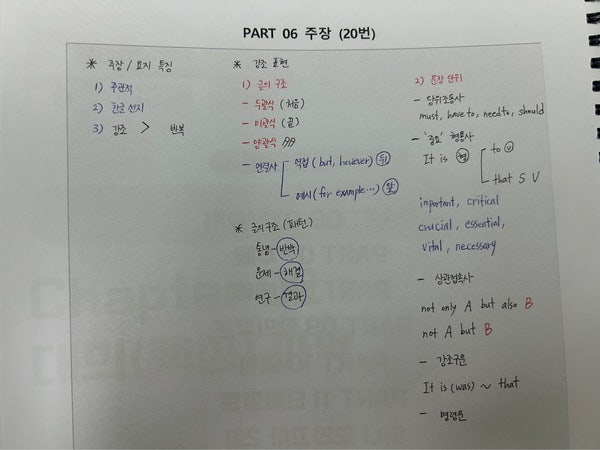 PART 06 주장 (20번)
* 주장 / 요지 특징
1) 주관적
2) 한글 선지
3) 강조 > 반복
* 강조 표현
1) 글의 구조
- 두괄식 (처음)
- 미괄식 (끝)
- 양괄식
- 연결사
역접 (but, however) 뒤
예시 (for example...) 앞
* 글의 구조 (패턴)
통념 - 반박
문제 - 해결
연구 - 결과
2) 문장 단위
- 당위조동사
must, have to, need to, should
- '중요' 형용사
It is 형
to V
that S V
important, critical
crucial, essential,
vital, necessary
- 상관접속사
not only A but also B
not A but B
- 강조구문
It is (was) ~ that
- 명령문